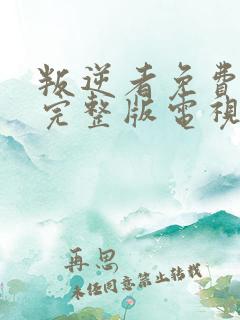 叛逆者免費
完整版電視
再思
未经同意禁止转载